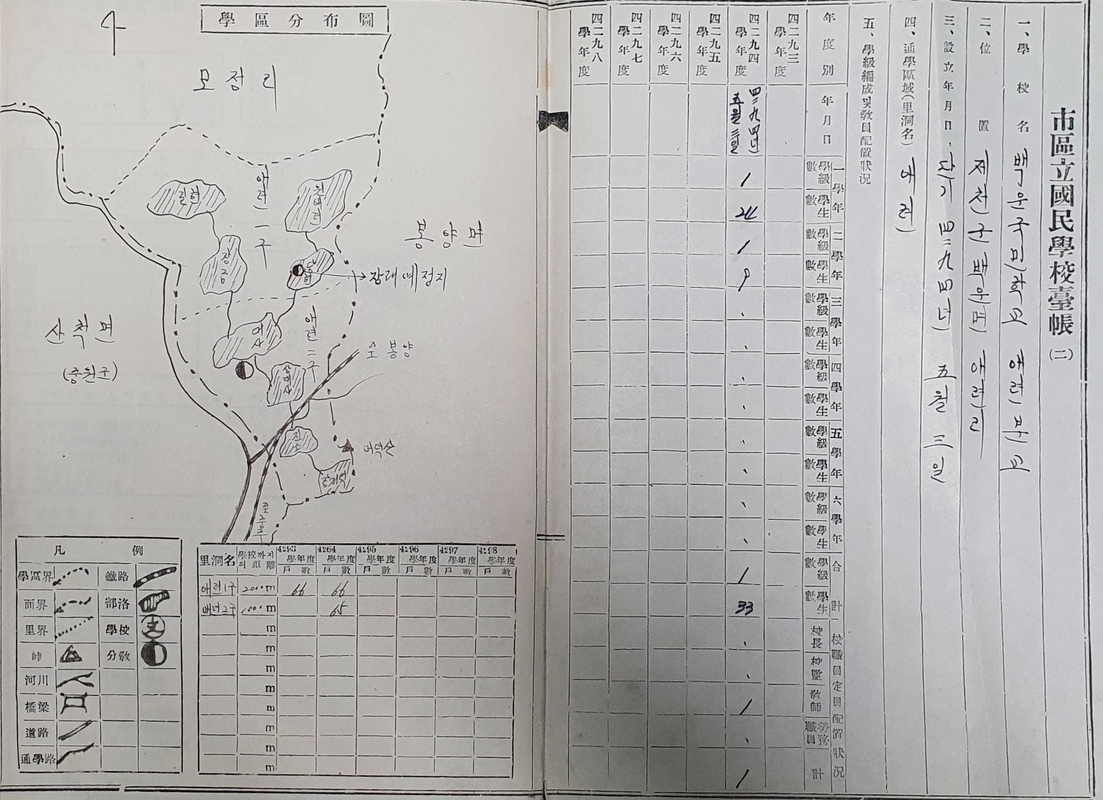 市區立國民學校臺帳 (二)
一、學校名 백운국민학교 애련분교
二、位置 제천군 백운면 애련리
三、設立年月日 단기 四二九四년 五월 三일
四、通學區域(里洞名) 애련
五、學級編成및敎員配置狀況
年度別 年月日 一學年 二學年 三學年 四學年 五學年 六學年 合計 校職員定員配置狀況
學級數 學生數 學級數 學生數 學級數 學生數 學級數 學生數 學級數 學生數 學級數 學生數 學級數 學生數 校長 校監 敎師 勞務職員 計
四二九三學年度
四二九四學年度 四二九四년 五월 三일 1 24 1 9 1 33 1 1
四二九五學年度
四二九六學年度
四二九七學年度
四二九八學年度
4
學區分布圖
모정리
애련一구
봉양면
장래예정지
산척면
(중원군)
애련二구
至 봉양
凡例
學區界 鐵路
面界 部落
里界 學校
峠 分敎
河川
橋梁
道路
通學路
里洞名 學校까지의距離 4293學年度 4264學年度 4295學年度 4296學年度 4297學年度 4298學年度
戶數 戶數 戶數 戶數 戶數 戶數
애련1구 2000m 66 66
애련2구 1500m 65
m
m
m
m
m
m
m
m